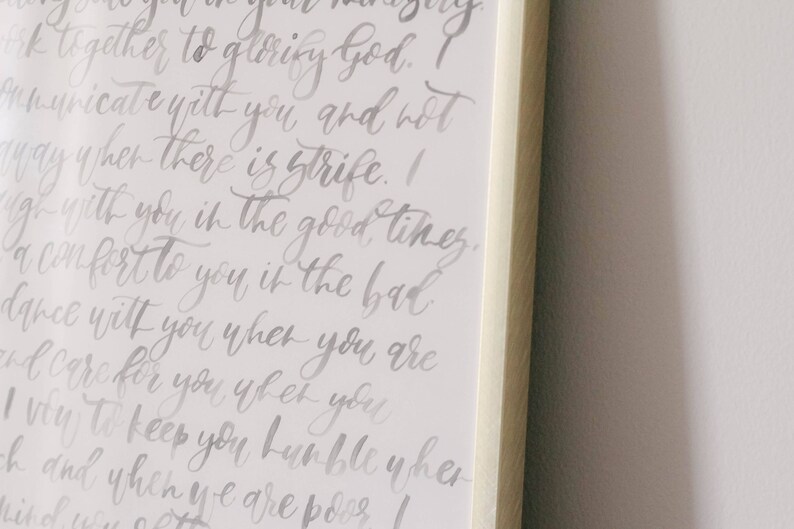 you in your ministry.
work together to glorify God. I
communicate with you and not
away when there is strife. I
laugh with you in the good times,
a comfort to you in the bad.
dance with you when you are
and care for you when you
I vow to keep you humble when
and when we are poor. I
you of